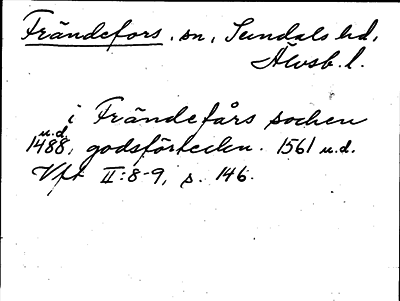 Frändefors. sn, Sundals hd,
Älvsb. l.
i Frändefårs sochen
u.d.
1488, godsförteckn. 1561 u.d.
Vft II:8-9, s. 146.